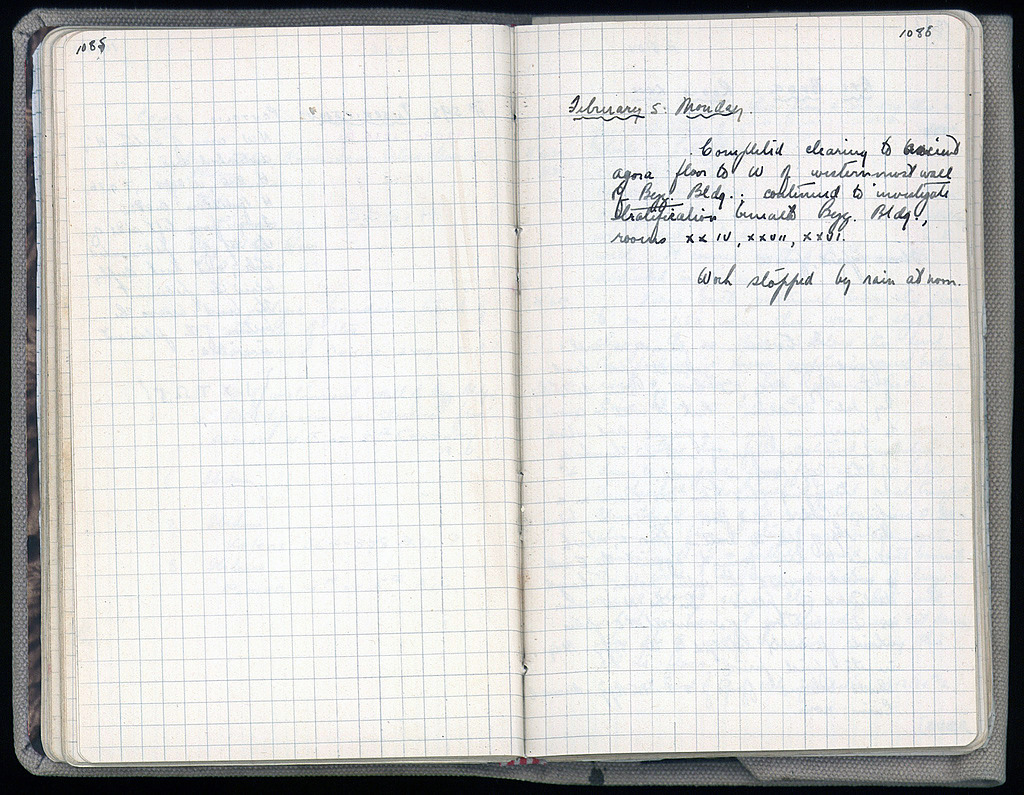 1085
1086
February 5. Monday.
Completed clearing to ancient
agora floor to W of westernmost wall
of Byz. Bldg.; continued to investigate
stratification beneath Byz. Bldg,
rooms xxiv, xxvii, xxvi.
Work stopped by rain at noon.